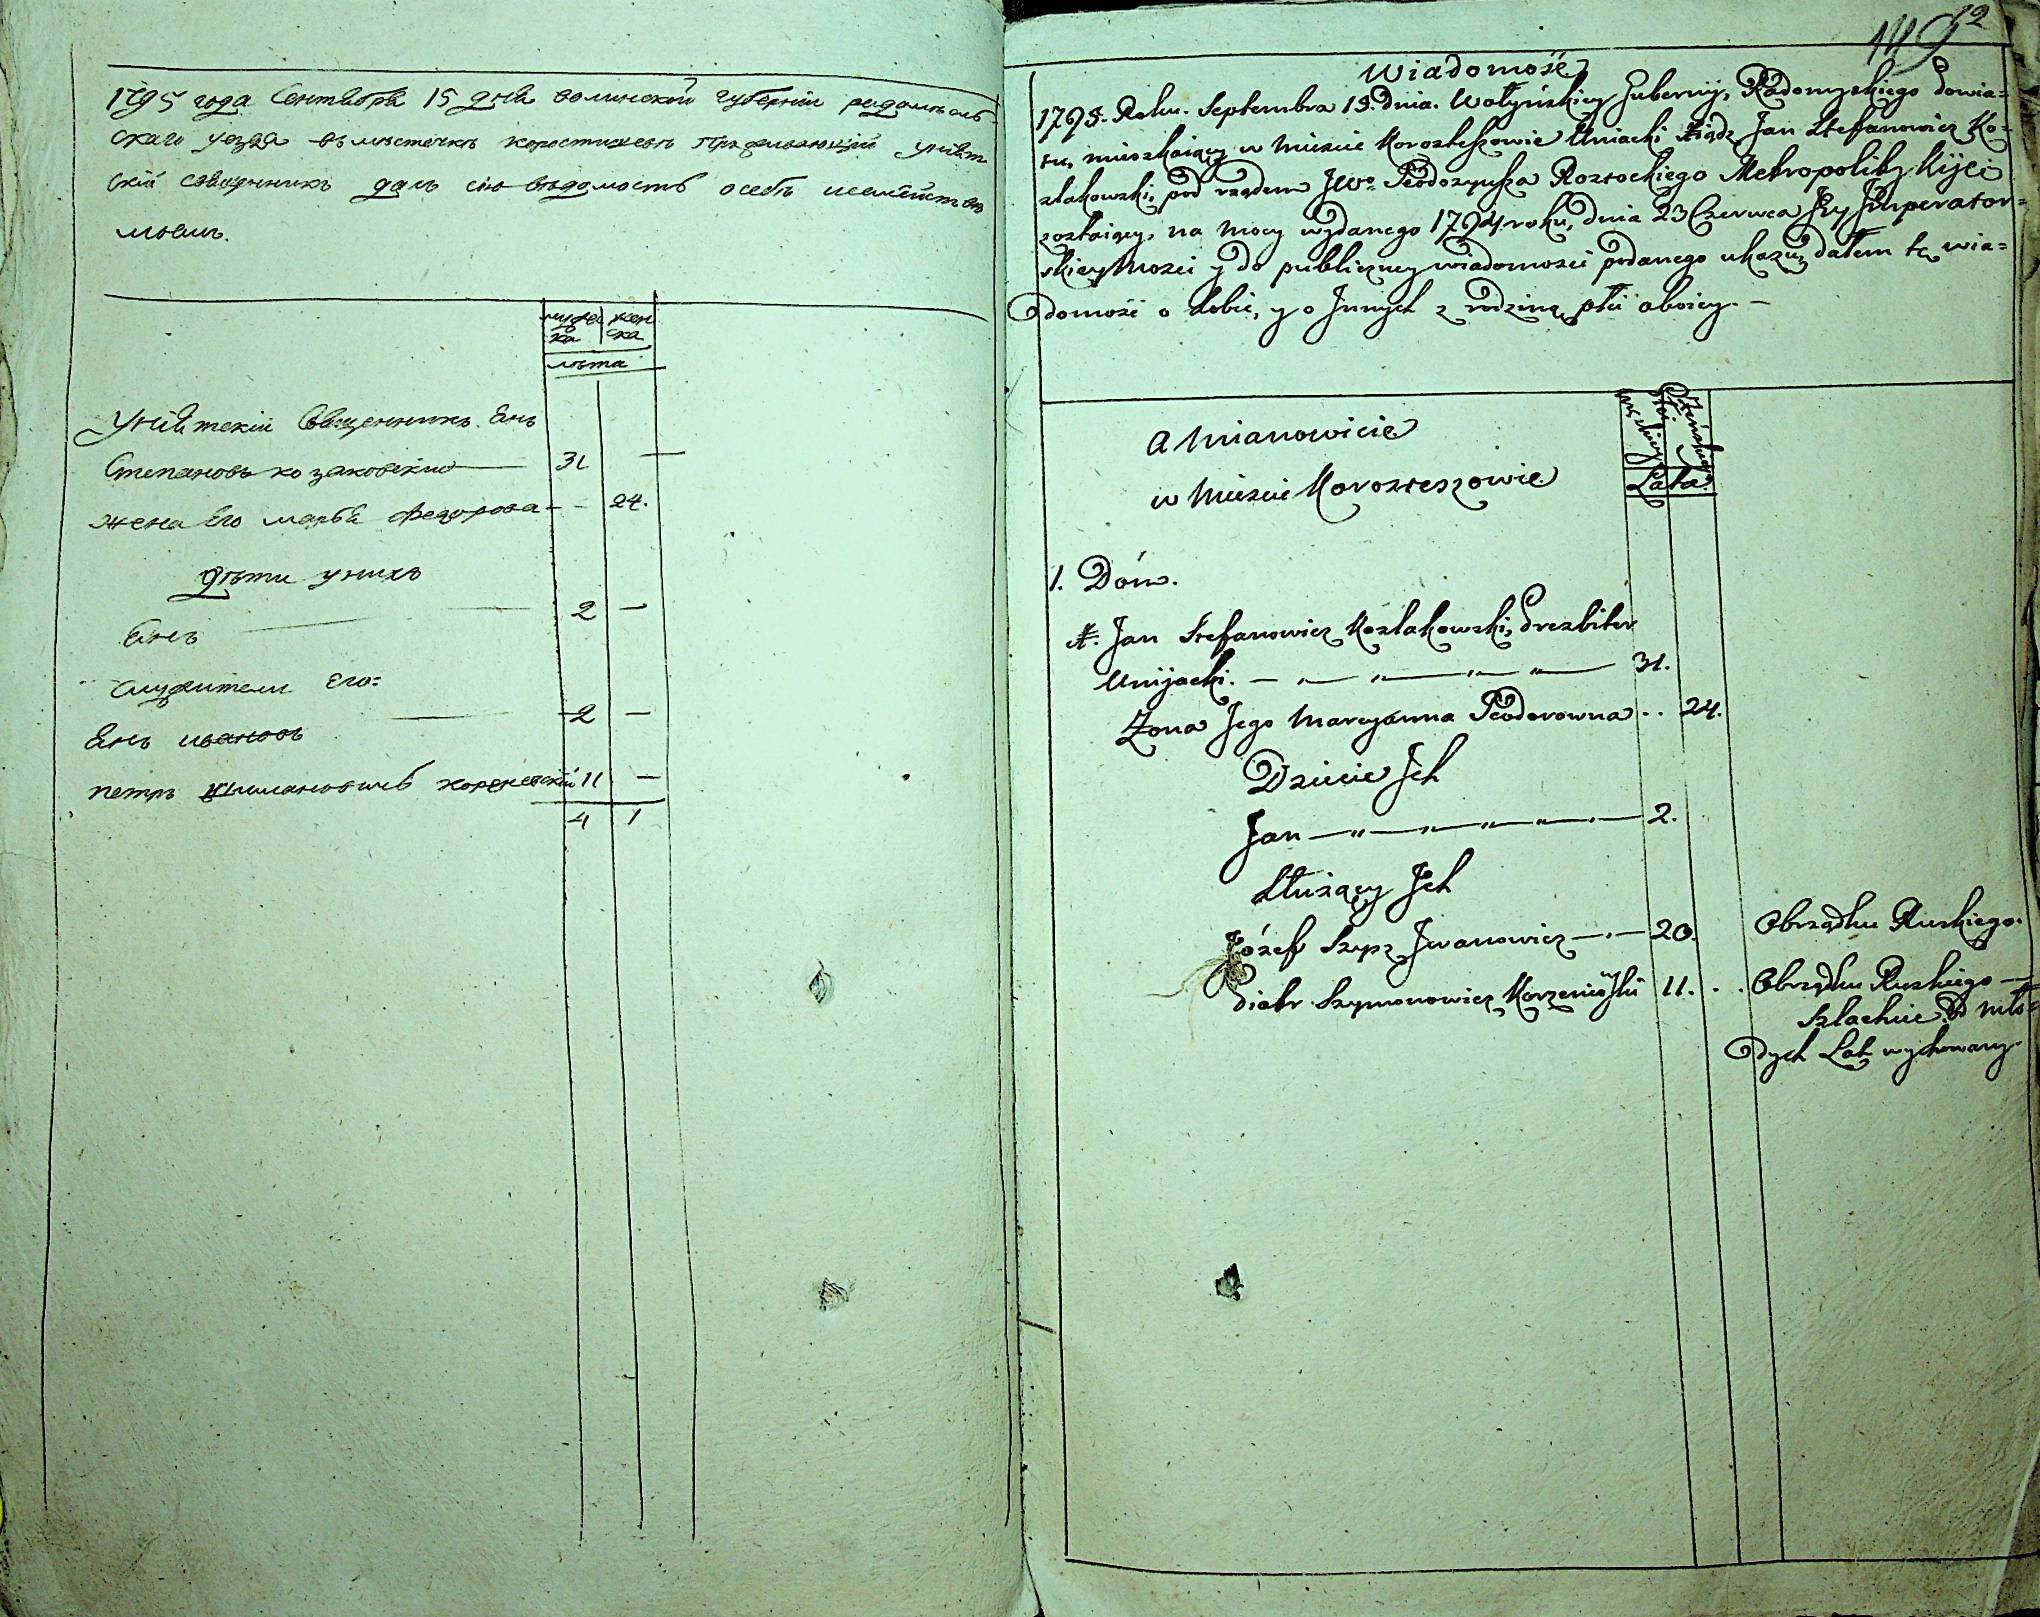 1795 года Сентября 15 дня волинской губернии радомысль
скаго уезда въ местечке коростишеве Прживающий уният
ский священникъ далъ сию ведомость о себе и семействе
моемъ.
мужес жен
ка ска
лета
Униятский Священникъ Янъ
Степановъ козаковский 31
жена Его марья федорова - - 24.
дети у нихъ
Янъ 2 —
служители Его:
Янъ ивановъ 2 —
петръ шимановичъ корженевский 11 —
4 1
12
Wiadomość
1795. Roku. Septembra 15. Dnia. Wołyńskiey Guberny, Radomyskiego Powia=
tu, mieszkaiący w Mieście Korosteszowie Uniacki Xiądz Jan Stefanowicz Ko=
złakowski, pod rządem JWo Teodozyusza Rostockiego Metropolity Kijei
zostaiący, na mocy wydanego 1794. roku, dnia 23 Czerwca Jey Jmperator=
skiey Mości y do publiczney wiadomości podanego ukazu, dałem tę wia=
domość o Sobie, y o Jnnych z rodziną płci oboiey. —
A Mianowicie
w Mieście Korosteszowie.
Płci
męskiey
Żeńskiey
Lata.
1. Dóm.
X. Jan Stefanowicz Kozłakowski, Prezbiter
Unijacki. — 31.
Żona Jego Maryanna Teodorowna . . 24.
Dziecie Jch
Jan — 2.
Służący Jch
Józef Szpz Jwanowicz — 20. Obrządku Ruskiego.
Piotr Szymonowicz Korzeniowski 11. . . Obrządku Ruskiego —
Szlachcic Od mło=
dych Lat wychowany.